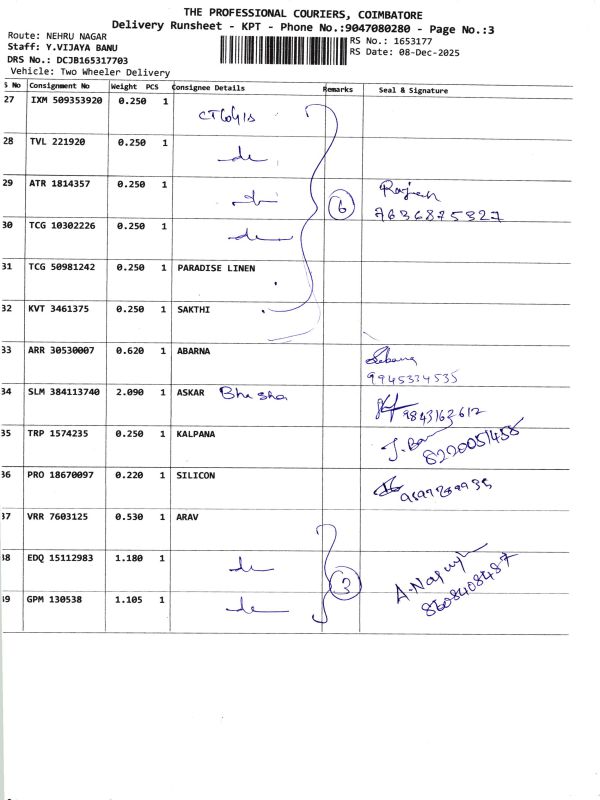 THE PROFESSIONAL COURIERS, COIMBATORE
Delivery Runsheet - KPT - Phone No.:9047080280 - Page No.:3
Route: NEHRU NAGAR
Staff: Y.VIJAYA BANU
DRS No.: DCJB165317703
Vehicle: Two Wheeler Delivery
RS No.: 1653177
RS Date: 08-Dec-2025
S No Consignment No Weight PCS Consignee Details Remarks Seal & Signature
27 IXM 509353920 0.250 1
28 TVL 221920 0.250 1
29 ATR 1814357 0.250 1 6 Rajesh
7636875327
30 TCG 10302226 0.250 1
31 TCG 50981242 0.250 1 PARADISE LINEN
32 KVT 3461375 0.250 1 SAKTHI
33 ARR 30530007 0.620 1 ABARNA
9945334535
34 SLM 384113740 2.090 1 ASKAR Bhasha 9843163612
35 TRP 1574235 0.250 1 KALPANA 8220051458
36 PRO 18670097 0.220 1 SILICON
37 VRR 7603125 0.530 1 ARAV
38 EDQ 15112983 1.180 1 3
39 GPM 130538 1.105 1 8608408487